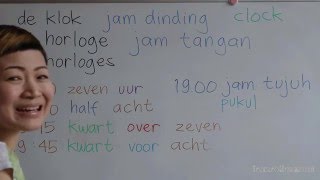 de klok jam dinding clock
horloge jam tangan
horloges
zeven uur 19.00 jam tujuh
pukul
half acht
15 kwart over zeven
45 kwart voor acht